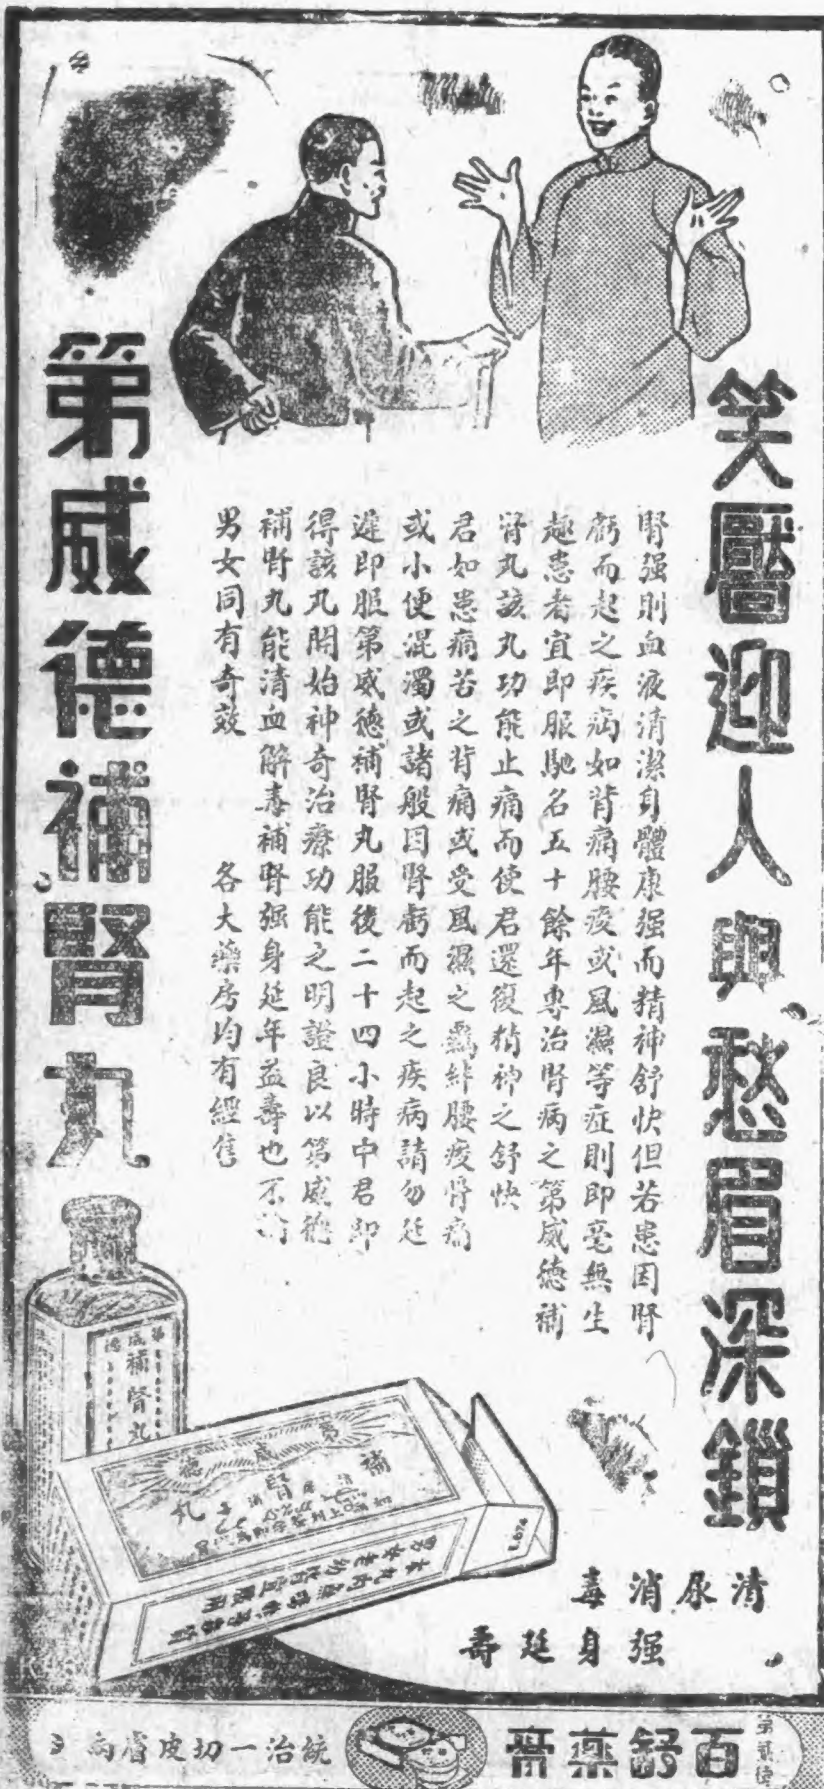 笑靨迎人與愁眉深鎖
腎强則血液清潔身體康强而精神舒快但若患因腎
虧而起之疾病如背痛腰痠或風濕等症則即毫無生
趣患者宜即服馳名五十餘年專治腎病之第威德補
腎丸該丸功能止痛而使君還復精神之舒快
君如患痛苦之背痛或受風濕之羈絆腰痠骨痛
或小便混濁或諸般因腎虧而起之疾病請勿延
遲即服第威德補腎丸服後二十四小時中君即
得該丸開始神奇治療功能之明證良以第威德
補腎丸能清血解毒補腎强身延年益壽也不論
男女同有奇效
各大藥房均有經售
第威德補腎丸
清尿消毒
强身延壽
第威德
補腎丸
第威德
補腎丸
百舒藥膏
統治一切皮膚病